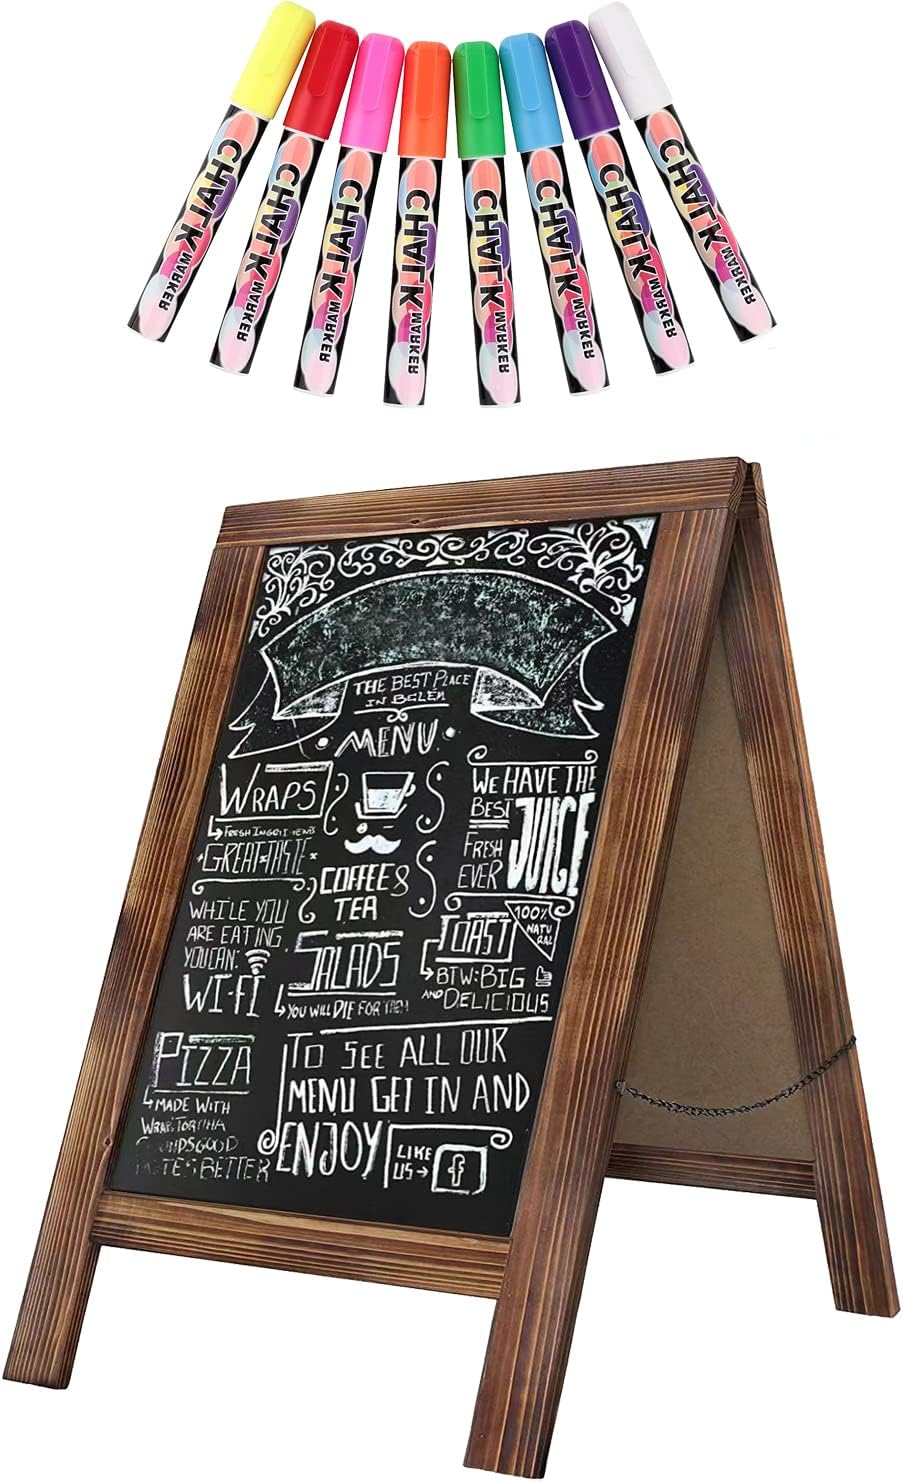 CHALK MARKER
CHALK MARKER
CHALK MARKER
CHALK MARKER
CHALK MARKER
CHALK MARKER
CHALK MARKER
CHALK MARKER
THE BEST PLACE
IN BELEM
MENU
WRAPS
FRESH INGRITIENS
GREAT TASTE
WHILE YOU
ARE EATING
YOU CAN:
WI-FI
COFFEE &
TEA
SALADS
YOU WILL DIE FOR THEM
WE HAVE THE
BEST
JUICE
FRESH
EVER
100%
NATU
RAL
TOAST
BTW: BIG
AND DELICIOUS
PIZZA
MADE WITH
WRAP TORTILHA
SOUNDS GOOD
TASTES BETTER
TO SEE ALL OUR
MENU GET IN AND
ENJOY
LIKE
US
f